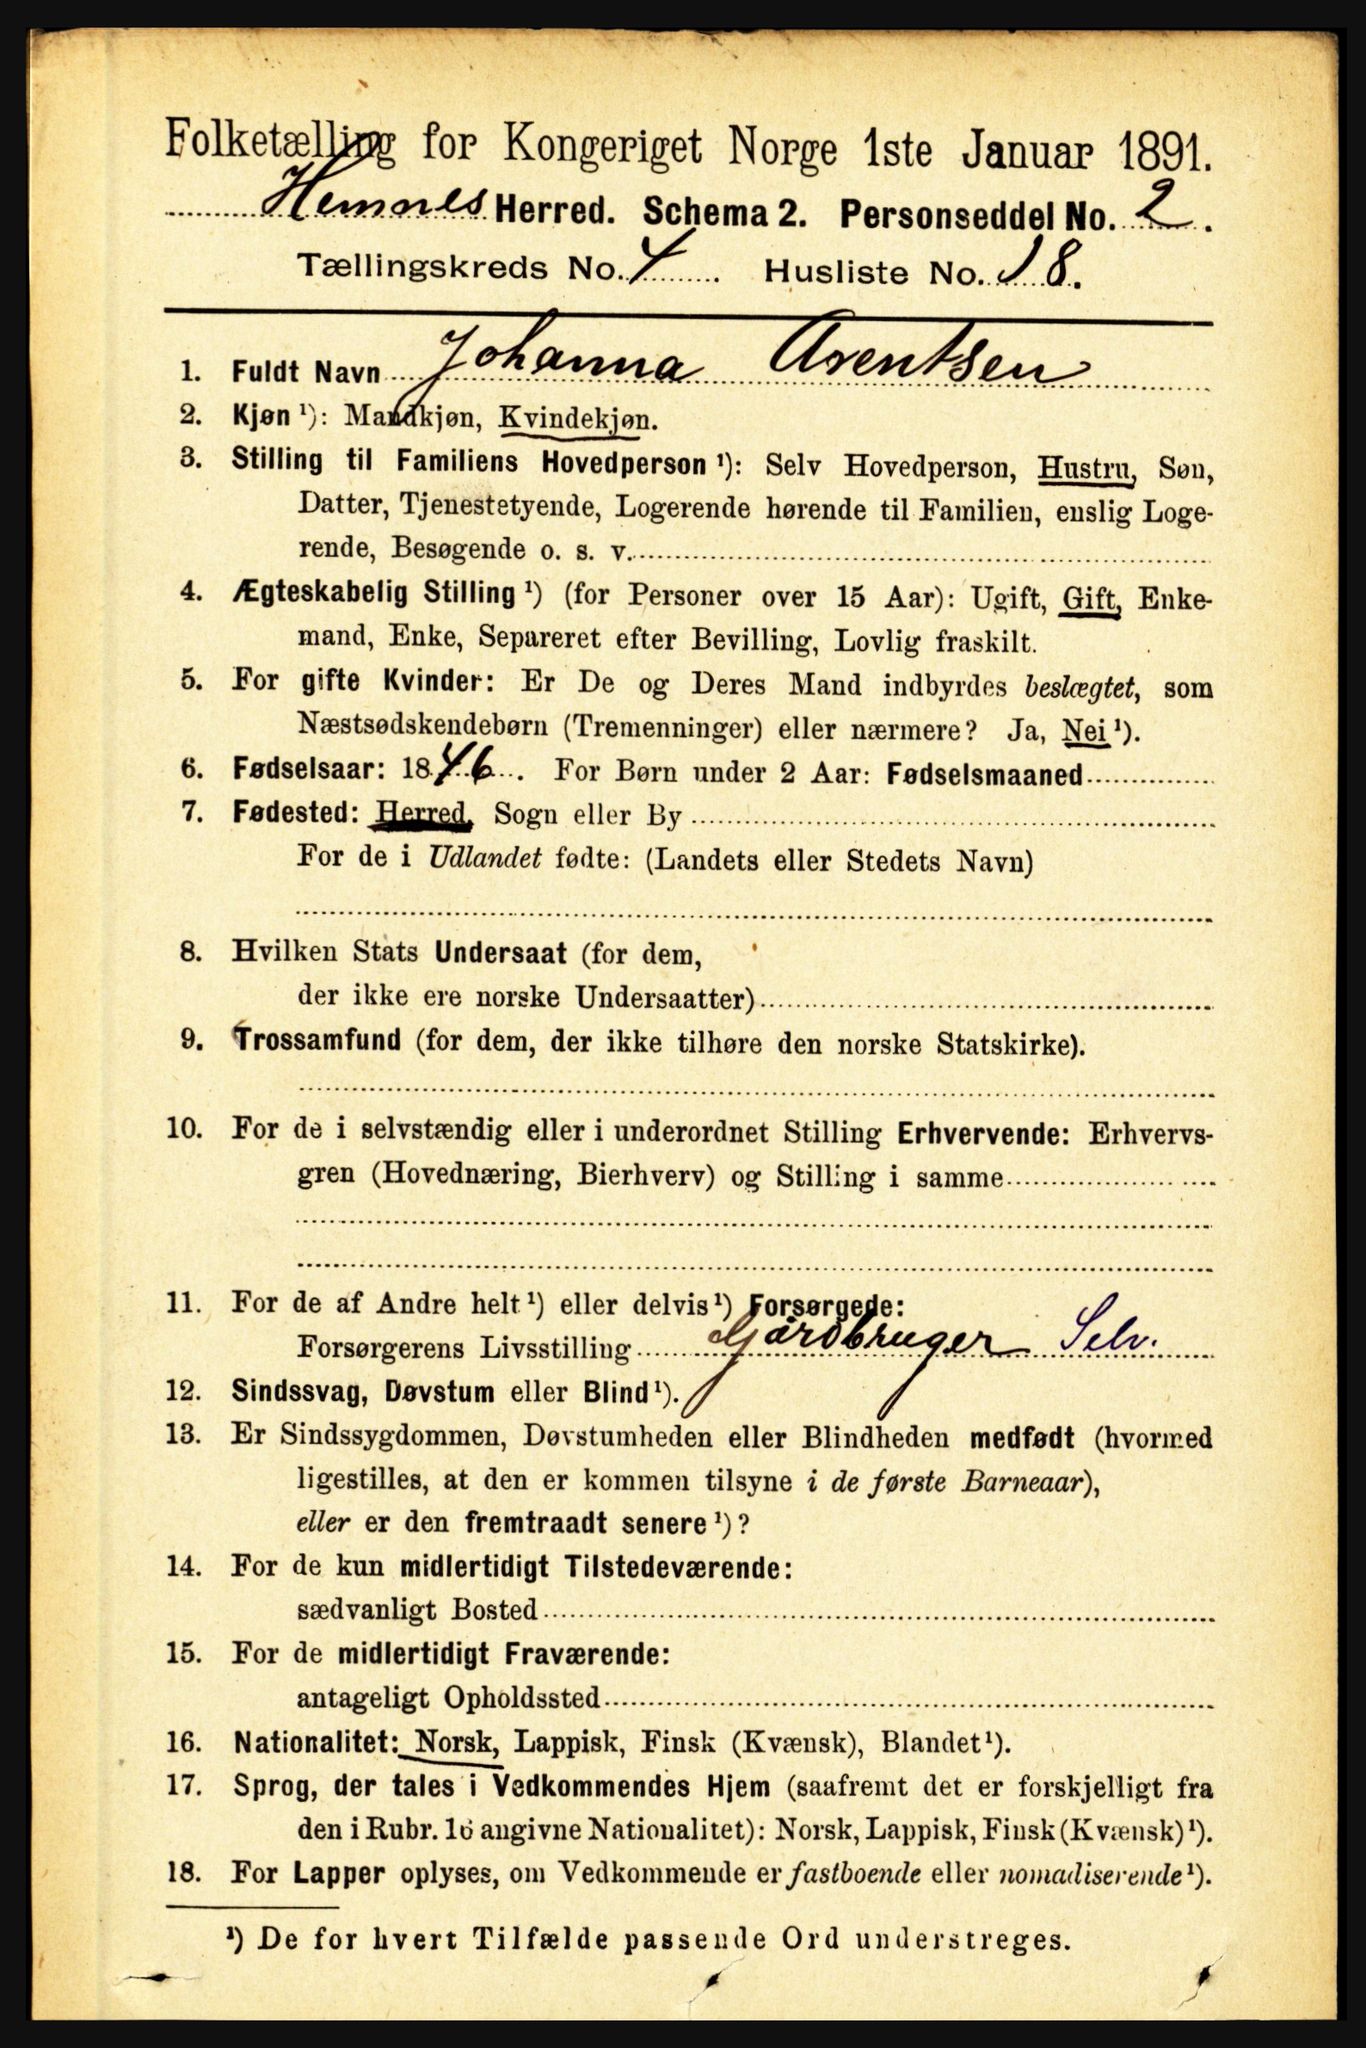 Folketælling for Kongeriget Norge 1ste Januar 1891.
Hemnes Herred. Schema 2. Personseddel No. 2.
Tællingskreds No. 4 Husliste No. 18.
1. Fuldt Navn Johanna Arentsen
2. Kjøn ¹): Mandkjøn, Kvindekjøn.
3. Stilling til Familiens Hovedperson ¹): Selv Hovedperson, Hustru, Søn,
Datter, Tjenestetyende, Logerende hørende til Familien, enslig Loge-
rende, Besøgende o. s. v.
4. Ægteskabelig Stilling ¹) (for Personer over 15 Aar): Ugift, Gift, Enke-
mand, Enke, Separeret efter Bevilling, Lovlig fraskilt.
5. For gifte Kvinder: Er De og Deres Mand indbyrdes beslægtet, som
Næstsødskendebørn (Tremenninger) eller nærmere? Ja, Nei ¹).
6. Fødselsaar: 1846. For Børn under 2 Aar: Fødselsmaaned
7. Fødested: Herred, Sogn eller By
For de i Udlandet fødte: (Landets eller Stedets Navn)
8. Hvilken Stats Undersaat (for dem,
der ikke ere norske Undersaatter)
9. Trossamfund (for dem, der ikke tilhøre den norske Statskirke).
10. For de i selvstændig eller i underordnet Stilling Erhvervende: Erhvervs-
gren (Hovednæring, Bierhverv) og Stilling i samme
11. For de af Andre helt ¹) eller delvis ¹) Forsørgede:
Forsørgerens Livsstilling Gårdbruger Selv.
12. Sindssvag, Døvstum eller Blind ¹).
13. Er Sindssygdommen, Døvstumheden eller Blindheden medfødt (hvormed
ligestilles, at den er kommen tilsyne i de første Barneaar),
eller er den fremtraadt senere ¹)?
14. For de kun midlertidigt Tilstedeværende:
sædvanligt Bosted
15. For de midlertidigt Fraværende:
antageligt Opholdssted
16. Nationalitet: Norsk, Lappisk, Finsk (Kvænsk), Blandet ¹).
17. Sprog, der tales i Vedkommendes Hjem (saafremt det er forskjelligt fra
den i Rubr. 16 angivne Nationalitet): Norsk, Lappisk, Finsk (Kvænsk) ¹).
18. For Lapper oplyses, om Vedkommende er fastboende eller nomadiserende ¹).
¹) De for hvert Tilfælde passende Ord understreges.